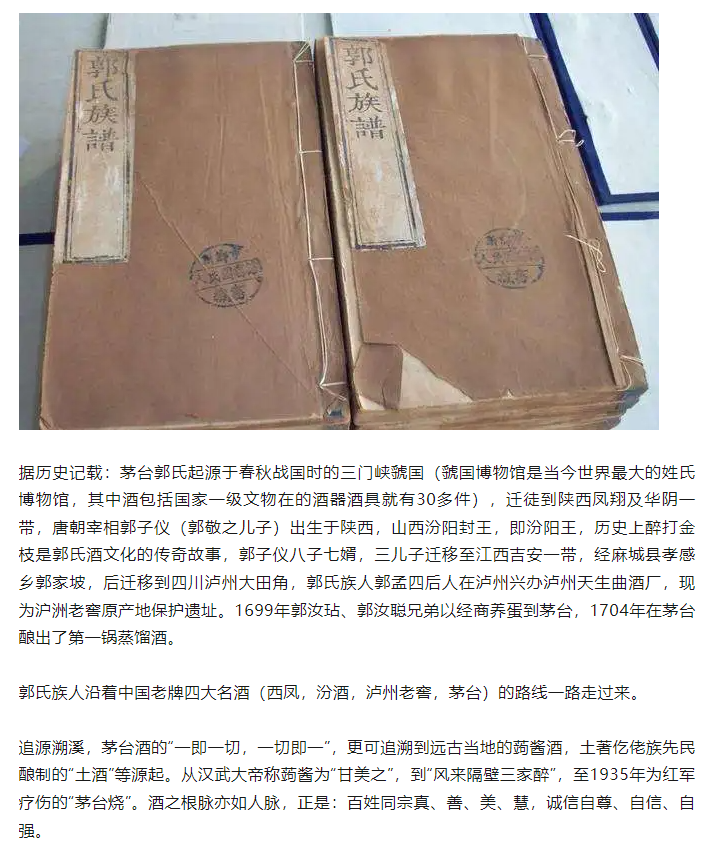 郭氏族譜
郭氏族譜
据历史记载：茅台郭氏起源于春秋战国时的三门峡虢国（虢国博物馆是当今世界最大的姓氏
博物馆，其中酒包括国家一级文物在的酒器酒具就有30多件），迁徒到陕西凤翔及华阴一
带，唐朝宰相郭子仪（郭敬之儿子）出生于陕西，山西汾阳封王，即汾阳王，历史上醉打金
枝是郭氏酒文化的传奇故事，郭子仪八子七婿，三儿子迁移至江西吉安一带，经麻城县孝感
乡郭家坡，后迁移到四川泸州大田角，郭氏族人郭孟四后人在泸州兴办泸州天生曲酒厂，现
为沪洲老窖原产地保护遗址。1699年郭汝玷、郭汝聪兄弟以经商养蛋到茅台，1704年在茅台
酿出了第一锅蒸馏酒。
郭氏族人沿着中国老牌四大名酒（西凤，汾酒，泸州老窖，茅台）的路线一路走过来。
追源溯溪，茅台酒的“一即一切，一切即一”，更可追溯到远古当地的蒟酱酒，土著仡佬族先民
酿制的“土酒”等源起。从汉武大帝称蒟酱为“甘美之”，到“风来隔壁三家醉”，至1935年为红军
疗伤的“茅台烧”。酒之根脉亦如人脉，正是：百姓同宗真、善、美、慧，诚信自尊、自信、自
强。